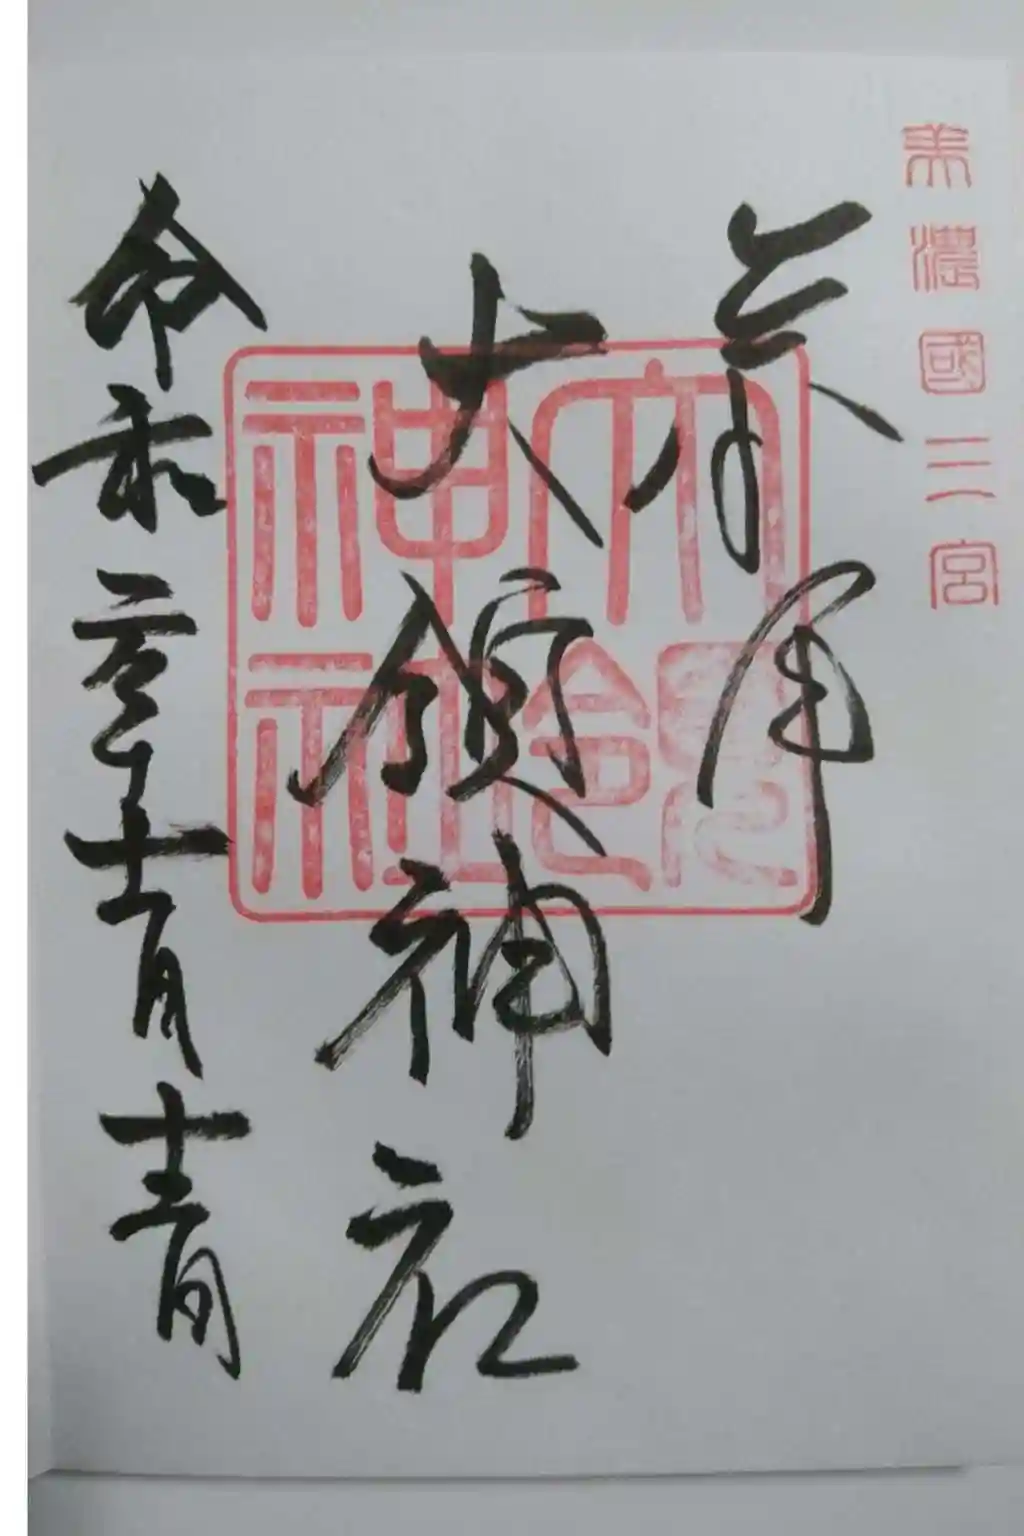 美濃國三宮
奉拝
大領神社
大領神社
令和年十一月日